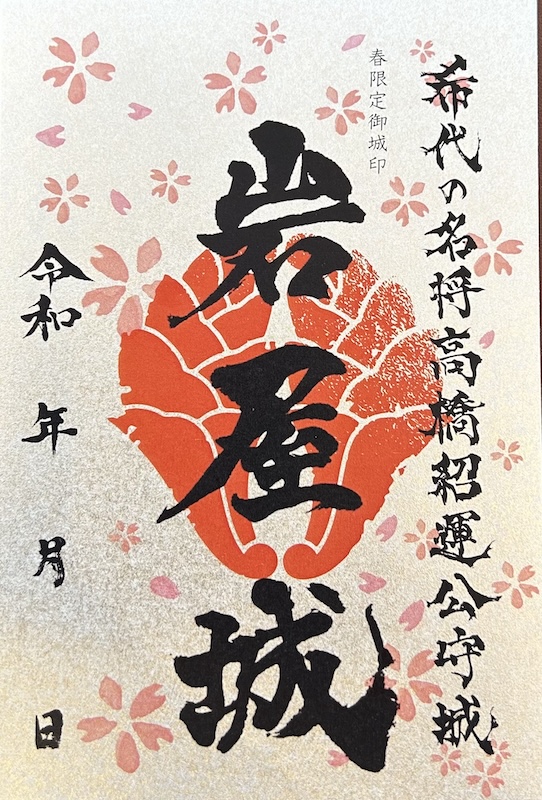 希代の名将高橋紹運公守城
春限定御城印
岩屋城
令和 年 月 日